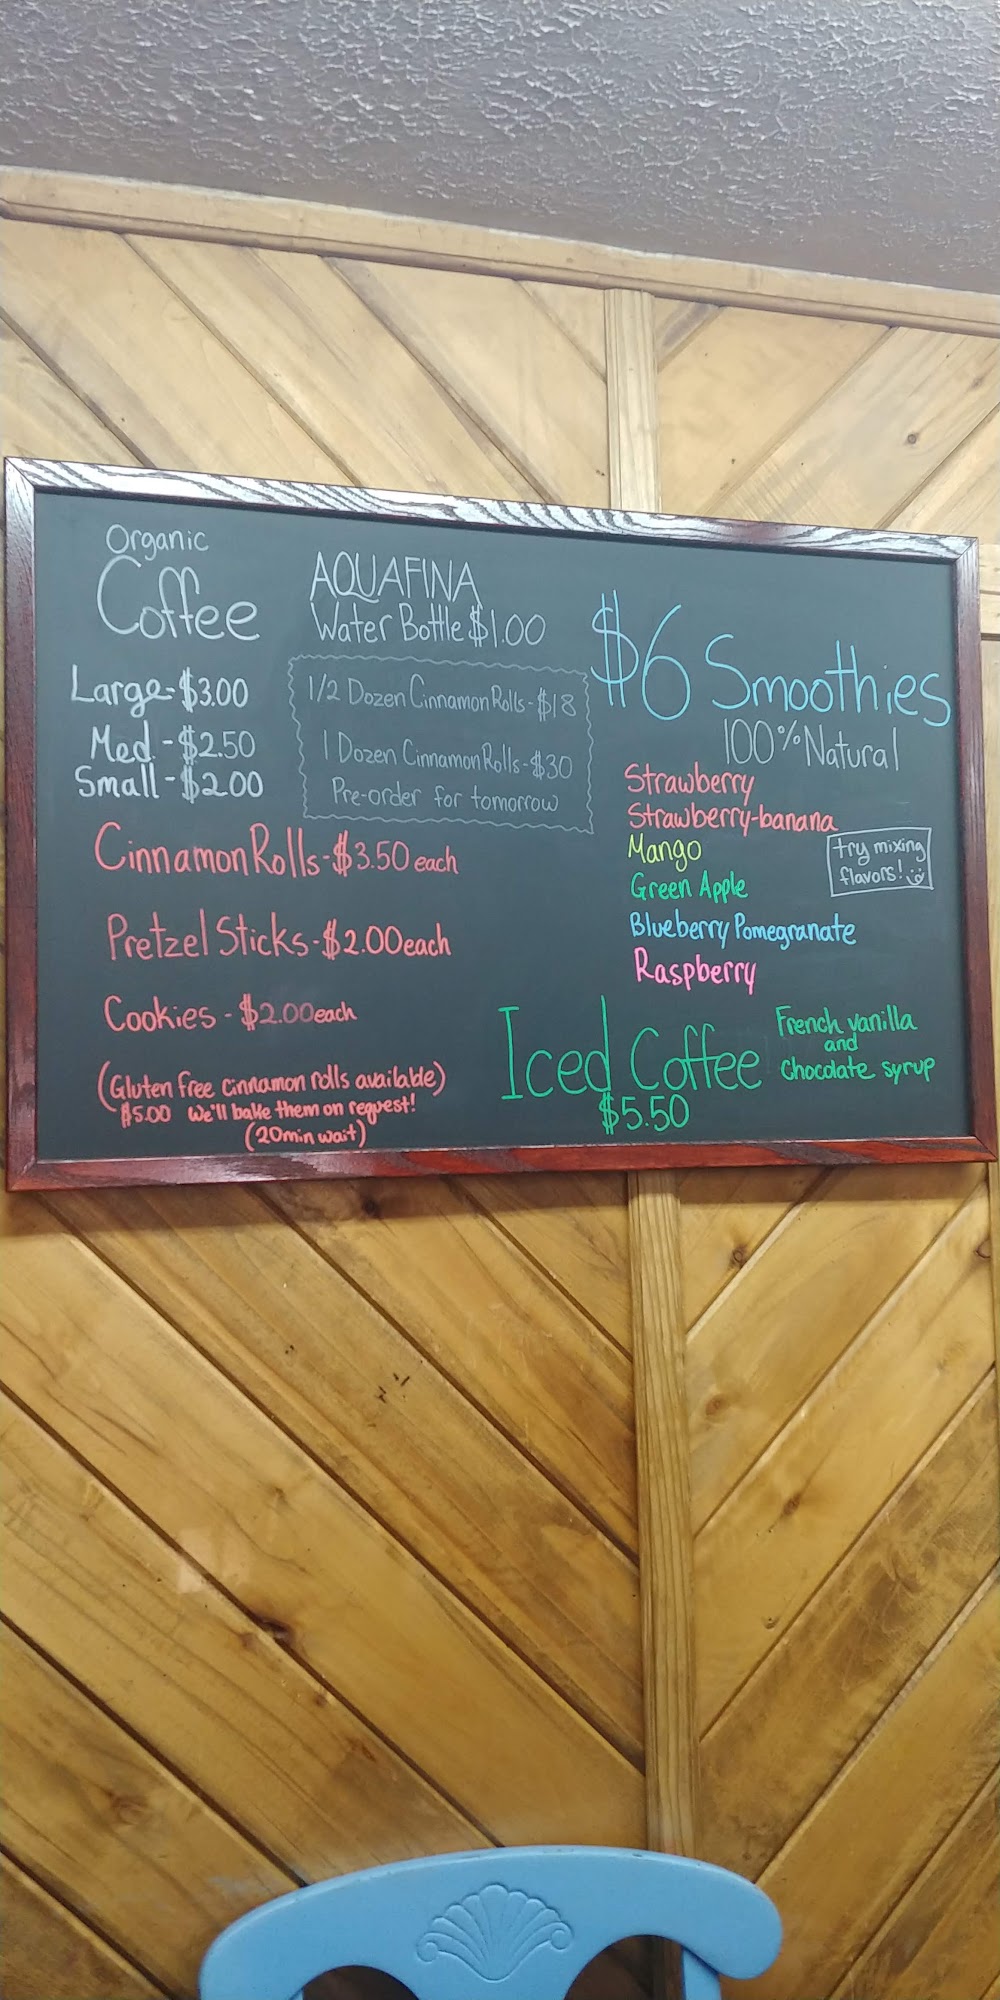 Organic
Coffee
Large-$3.00
Med.-$2.50
Small-$2.00
AQUAFINA
Water Bottle $1.00
1/2 Dozen Cinnamon Rolls-$18
1 Dozen Cinnamon Rolls-$30
Pre-order for tomorrow
Cinnamon Rolls-$3.50 each
Pretzel Sticks-$2.00 each
Cookies-$2.00 each
(Gluten free cinnamon rolls available)
$5.00 We'll bake them on request!
(20 min wait)
$6 Smoothies
100% Natural
Strawberry
Strawberry-banana
Mango
Green Apple
Blueberry Pomegranate
Raspberry
try mixing
flavors!
Iced Coffee
$5.50
French vanilla
and
Chocolate syrup